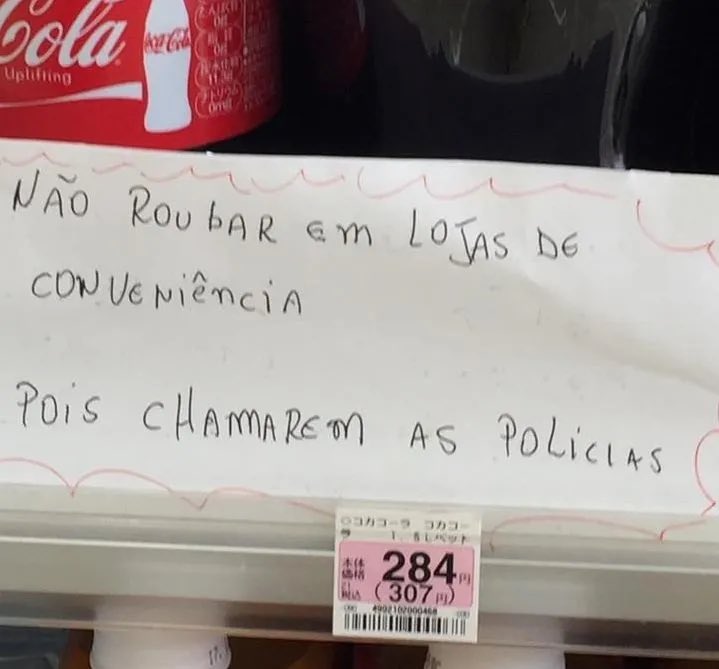 Cola
Uplifting
Coca-Cola
NÃO ROUbAR Em LOJAS DE
CONVENiêNCIA
POiS CHAMAREm AS POLiCIAS
コカコーラ コカコー
ラ 1.5Lペット
本体
価格
284円
税込
(307円)
4902102000468